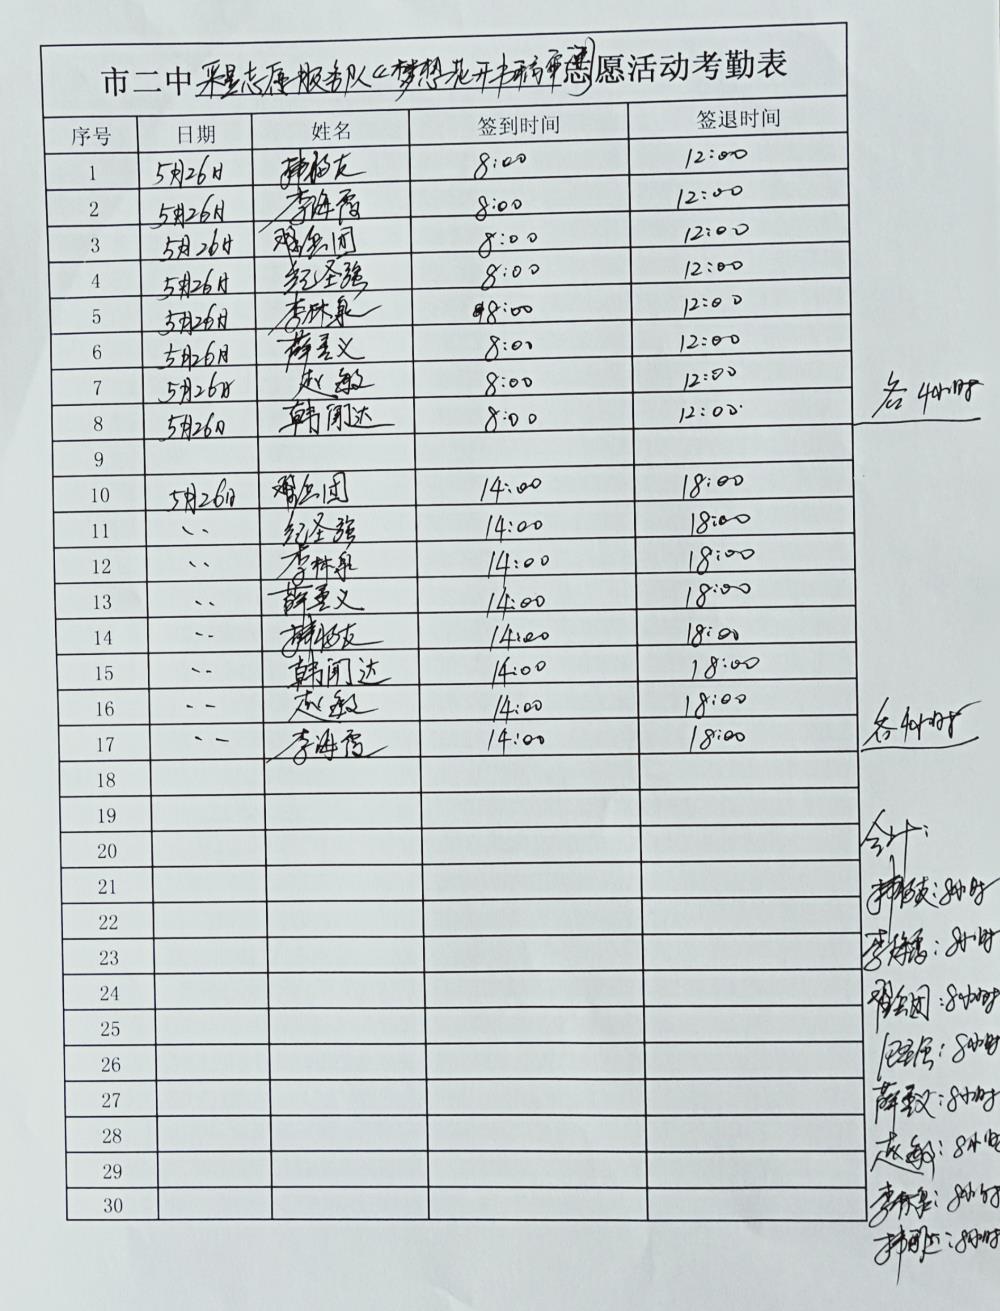 市二中采星志愿服务队《梦想花开书稿审》志愿活动考勤表
序号 日期 姓名 签到时间 签退时间
1 5月26日 韩 友 8:00 12:00
2 5月26日 李海霞 8:00 12:00
3 5月26日 邓兵团 8:00 12:00
4 5月26日 纪圣强 8:00 12:00
5 5月26日 李林泉 8:00 12:00
6 5月26日 薛重义 8:00 12:00
7 5月26日 赵敏 8:00 12:00
8 5月26日 韩闻达 8:00 12:00
各4小时
9
10 5月26日 邓兵团 14:00 18:00
11 〃 纪圣强 14:00 18:00
12 〃 李林泉 14:00 18:00
13 〃 薛重义 14:00 18:00
14 〃 韩 友 14:00 18:00
15 〃 韩闻达 14:00 18:00
16 〃 赵敏 14:00 18:00
17 〃 李海霞 14:00 18:00
各4小时
18
19
20
合计:
21
韩 友:8小时
22
23
李海霞:8小时
24
邓兵团:8小时
25
26
纪圣强:8小时
27
薛重义:8小时
28
赵敏:8小时
29
30
李林泉:8小时
韩闻达:8小时